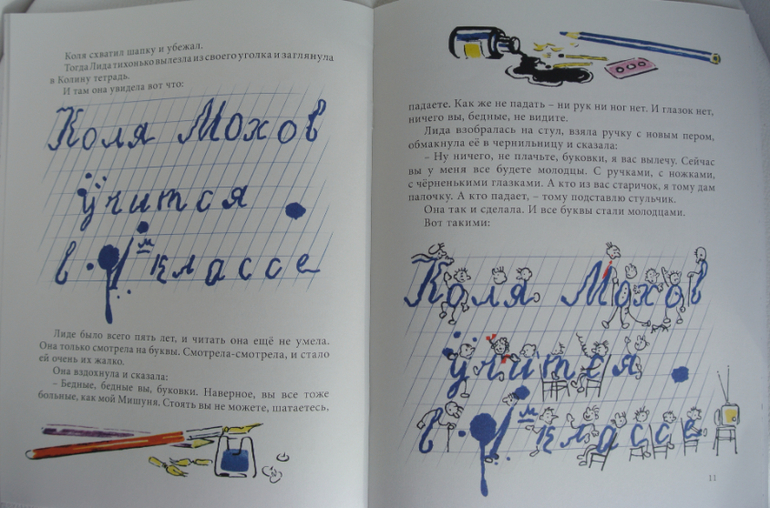 Коля схватил шапку и убежал.
Тогда Лида тихонько вылезла из своего уголка и заглянула
в Колину тетрадь.
И там она увидела вот что:
Коля Мохов
учится
в 1м классе
Лиде было всего пять лет, и читать она ещё не умела.
Она только смотрела на буквы. Смотрела-смотрела, и стало
ей очень их жалко.
Она вздохнула и сказала:
– Бедные, бедные вы, буковки. Наверное, вы все тоже
больные, как мой Мишуня. Стоять вы не можете, шатаетесь,
падаете. Как же не падать – ни рук ни ног нет. И глазок нет,
ничего вы, бедные, не видите.
Лида взобралась на стул, взяла ручку с новым пером,
обмакнула её в чернильницу и сказала:
– Ну ничего, не плачьте, буковки, я вас вылечу. Сейчас
вы у меня все будете молодцы. С ручками, с ножками,
с чёрненькими глазками. А кто из вас старичок, я тому дам
палочку. А кто падает, – тому подставлю стульчик.
Она так и сделала. И все буквы стали молодцами.
Вот такими:
Коля Мохов
учится
в 1м классе
11